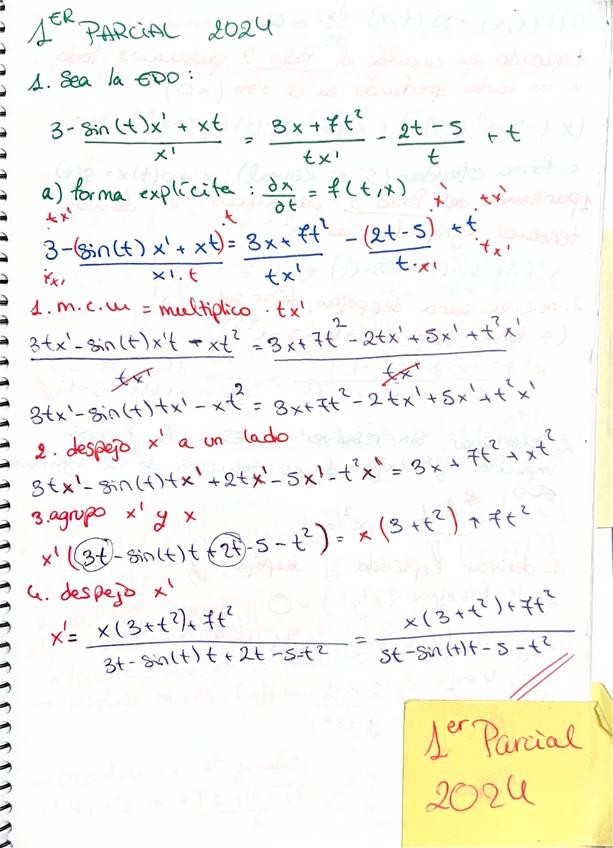 1ER PARCIAL 2024
1. Sea la EDO:
3 - sin(t)x' + xt / x' = 3x + 7t² / tx' - 2t - 5 / t + t
a) forma explícita: ∂x/∂t = f(t,x)
tx' t x' tx'
3 - (sin(t) x' + xt) / x'·t = 3x + 7t² / tx' - (2t - 5) / t·x' + t
tx' tx'
1. m.c.m = multiplico · tx'
3tx' - sin(t)x't - xt² / tx' = 3x + 7t² - 2tx' + 5x' + t²x' / tx'
3tx' - sin(t)tx' - xt² = 3x + 7t² - 2tx' + 5x' + t²x'
2. despejo x' a un lado
3tx' - sin(t)tx' + 2tx' - 5x' - t²x' = 3x + 7t² + xt²
3. agrupo x' y x
x'(3t - sin(t)t + 2t - 5 - t²) = x(3 + t²) + 7t²
4. despejo x'
x' = x(3 + t²) + 7t² / 3t - sin(t)t + 2t - 5 - t² = x(3 + t²) + 7t² / 5t - sin(t)t - 5 - t²
1er Parcial
2024